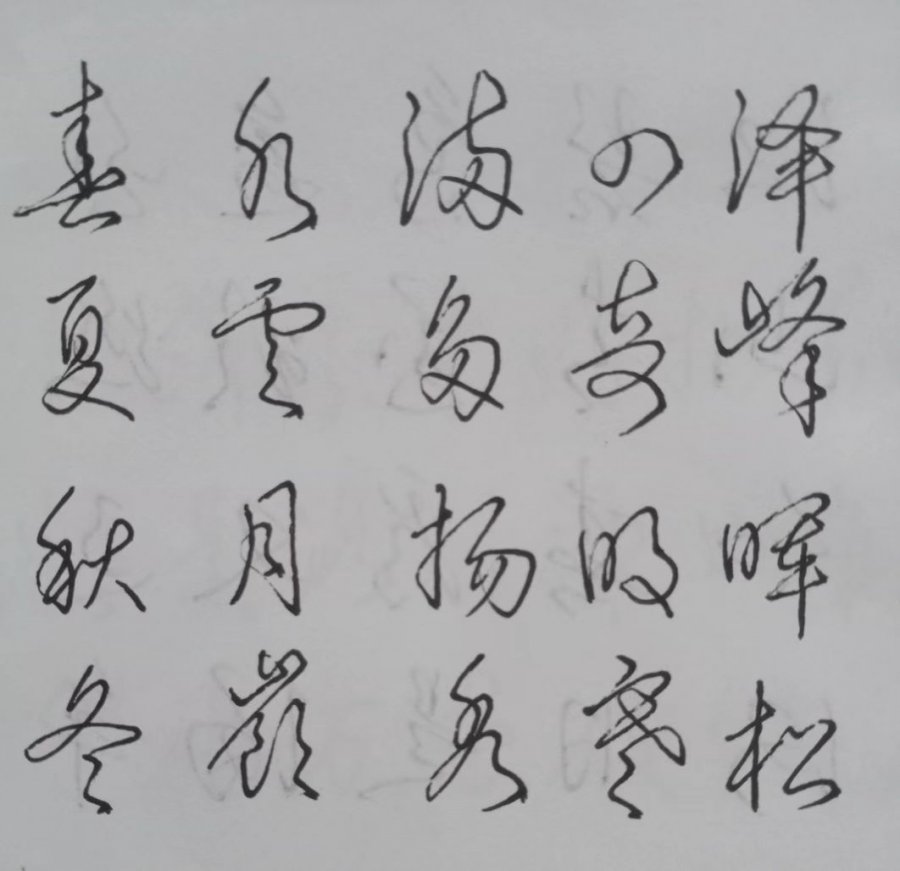 春水满四泽
夏雲多奇峰
秋月扬明晖
冬嶺秀寒松